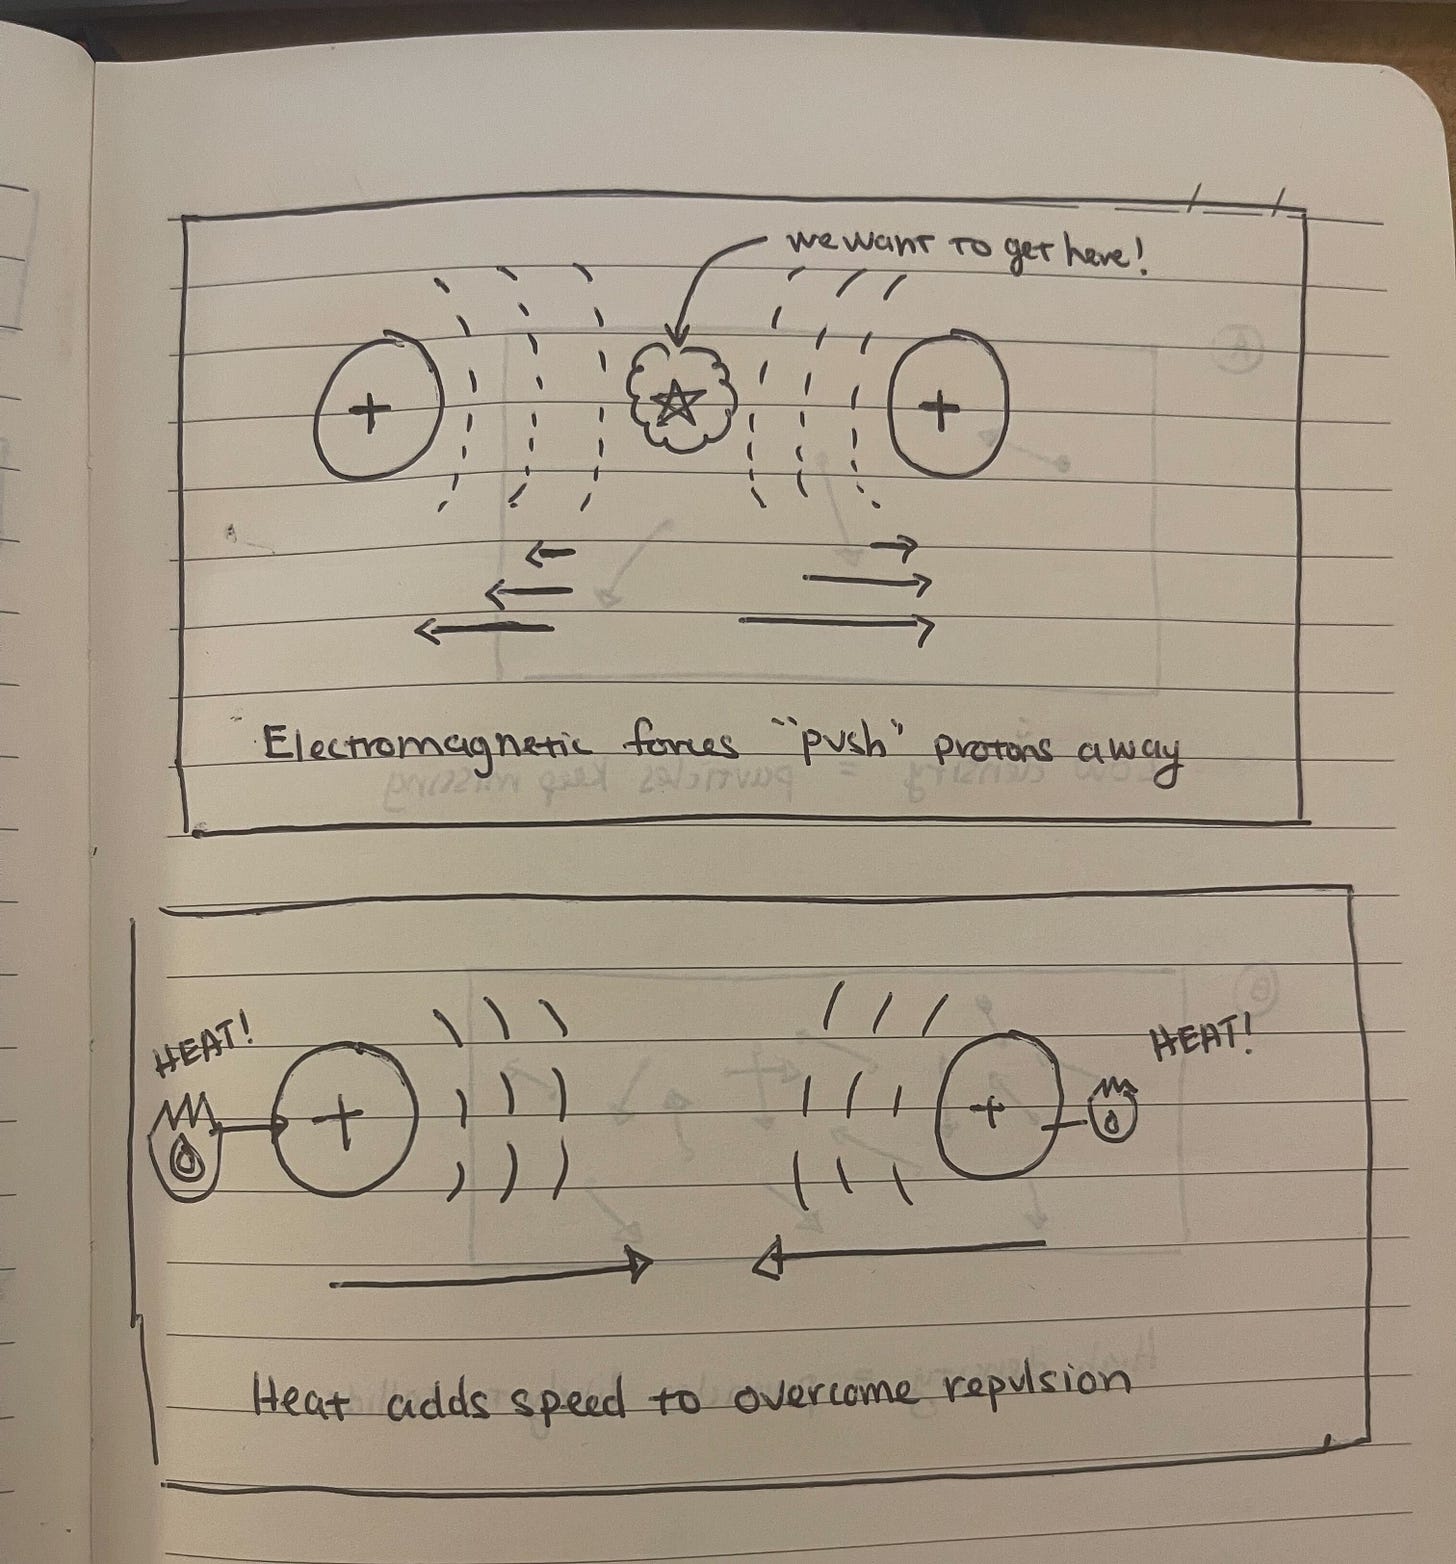 we want to get here!
+ +
Electromagnetic forces "push" protons away
HEAT! HEAT!
+ +
Heat adds speed to overcome repulsion